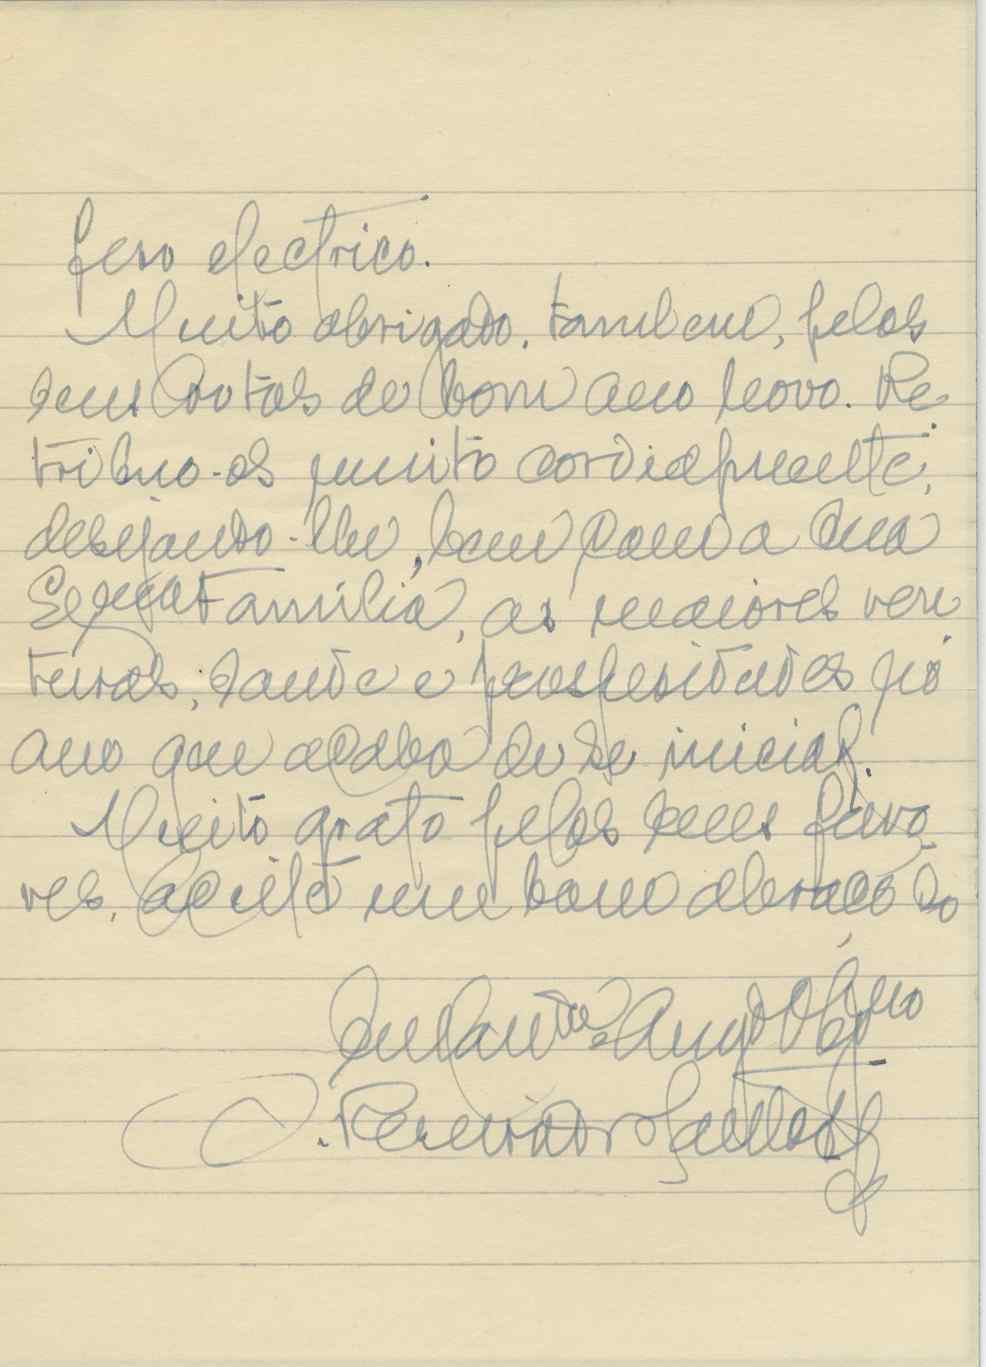 ferro electrico.
Muito obrigado, tambem, pelos
seus votos de bom ano novo. Re
tribuo-os muito cordialmente,
desejando-lhe, bem como a sua
Exma Familia, as maiores ven
turas, saude e prosperidades no
ano que acaba de se iniciar.
Muito grato pelos seus favo
res, aceite um bom abraço do
Amgo Obgmo
Pereira dos Santos